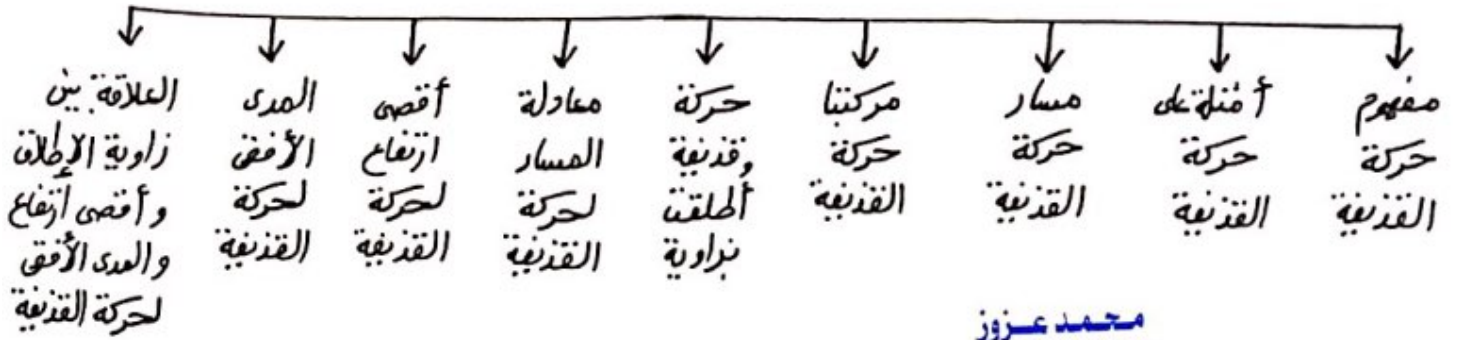 مفهوم
حركة
القذيفة
أمثلة على
حركة
القذيفة
مسار
حركة
القذيفة
مركبتا
حركة
القذيفة
حركة
قذيفة
أطلقت
بزاوية
معادلة
المسار
لحركة
القذيفة
أقصى
ارتفاع
لحركة
القذيفة
المدى
الأفقي
لحركة
القذيفة
العلاقة بين
زاوية الإطلاق
وأقصى ارتفاع
والمدى الأفقي
لحركة القذيفة
محمد عزوز